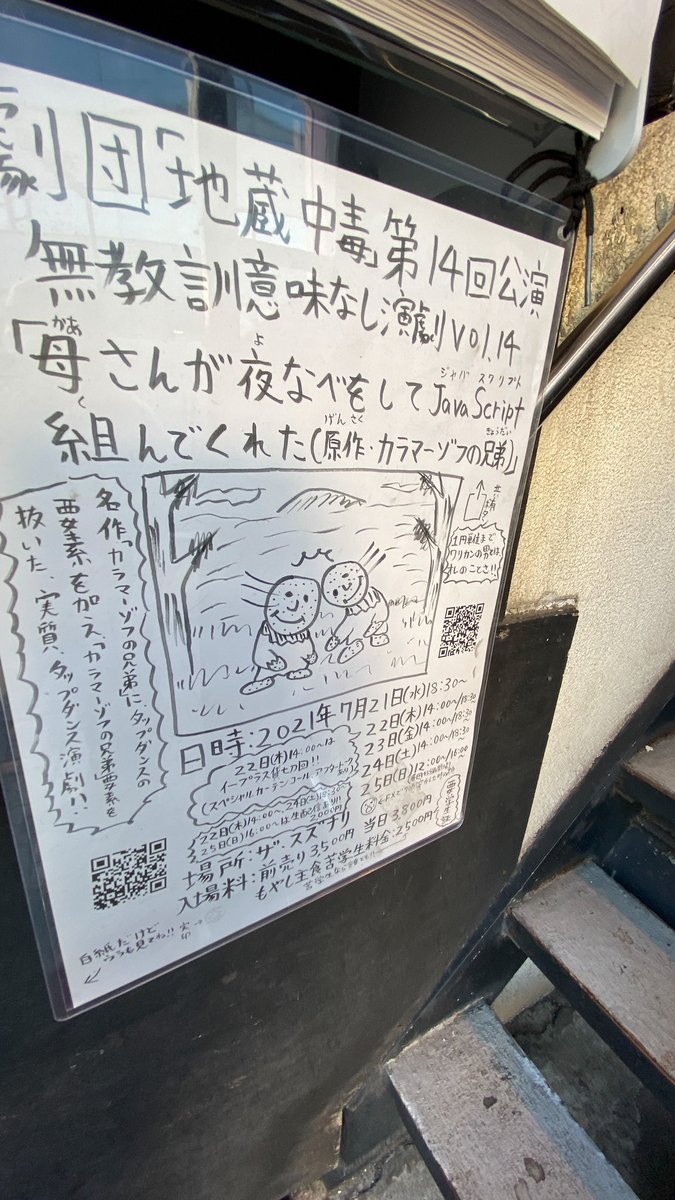 劇団「地蔵中毒」第14回公演
無教訓意味なし演劇vol.14
「母さんが夜なべをしてJavaScript
かあ
よ
ジャバ スクリプト
組んでくれた(原作・カラマーゾフの兄弟)」
く
げんさく
きょうだい
名作「カラマーゾフの兄弟」に、タップダンスの
要素を加え、「カラマーゾフの兄弟」要素を
抜いた、実質、タップダンス演劇!!
1円単位まで
ワリカンの男とは、
オレのことさ!!
日時:2021年7月21日(水)18:30~
22日(木)14:00~/18:30
23日(金)14:00~/18:30~
24日(土)14:00~/18:30
25日(日)12:00~/16:00
22日(木)14:00~は
イープラス貸切回!!
(スペシャルカーテンコール、アフタートークあり)
22日(木)14:00~、24日(土)18:30~
25日(日)16:00~は生配信あり!!
2000円
場所:ザ・スズナリ
入場料:前売り3,500円 当日3,800円
もやし主食苦学生料金:2,500円
白紙だけど
ウラも見てね!!